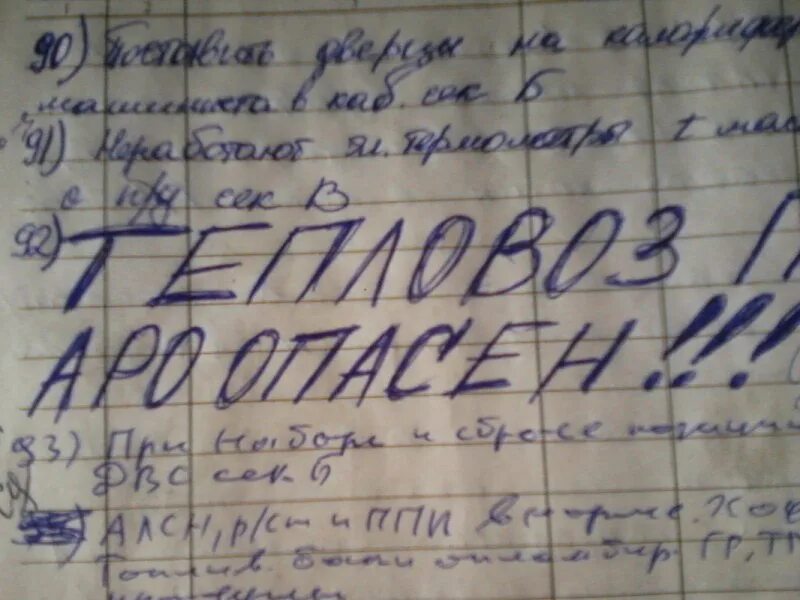 90) Поставить дверцы на калорифер
машиниста в каб. сек Б
91) Неработают эл. термометры t мас
с п/у сек В
92) ТЕПЛОВОЗ П
АРООПАСЕН!!!
93) При наборе и сбросе позиций
ДВС сек. Б
АЛСН, р/ст и ППИ в норме.
Топлив. баки опломбир. ГР, ТР